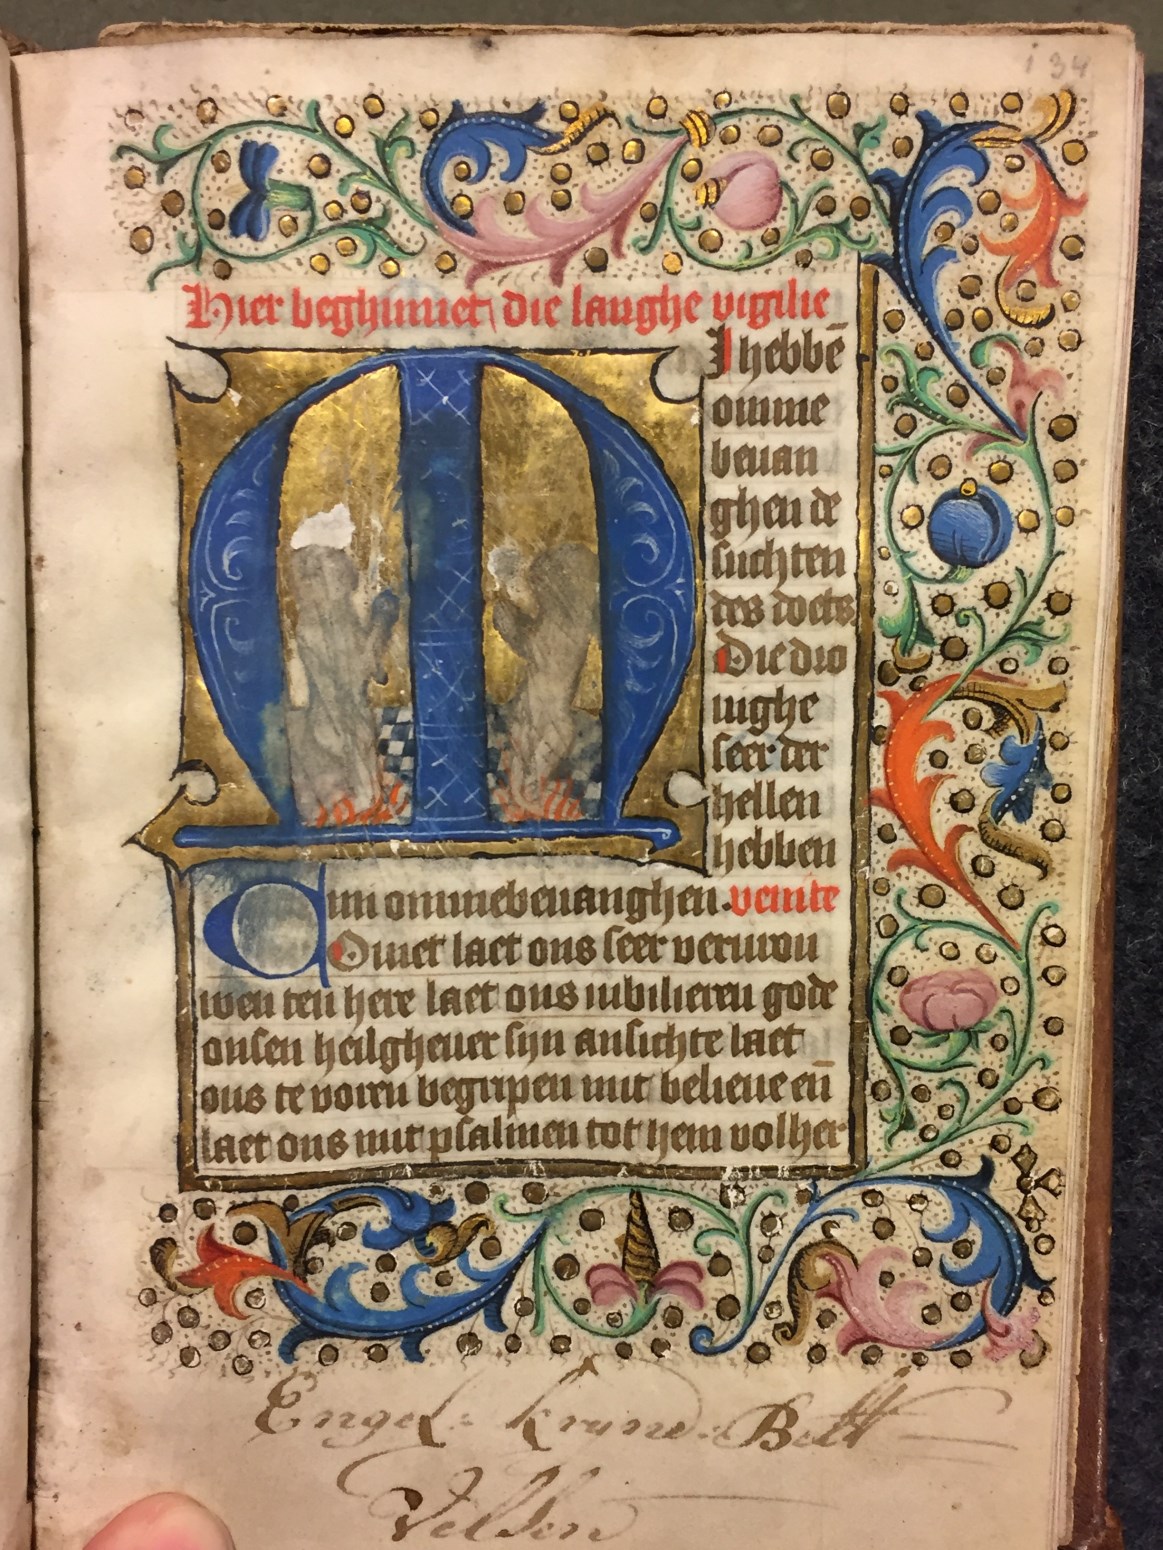 134
Hier beghinnet die langhe vigilie
M I hebbē
omme
beuan
ghen de
suchten
des doets
Die dro
uighe
seer der
hellen
hebben
mi ommebeuanghen. venite
Comet laet ons seer verurou
wen ten here laet ons iubilieren gode
onsen heilgheuer sijn ansichte laet
ons te voren begripen mit belieue eñ
laet ons mit psalmen tot hem volher
Engel
Velsen